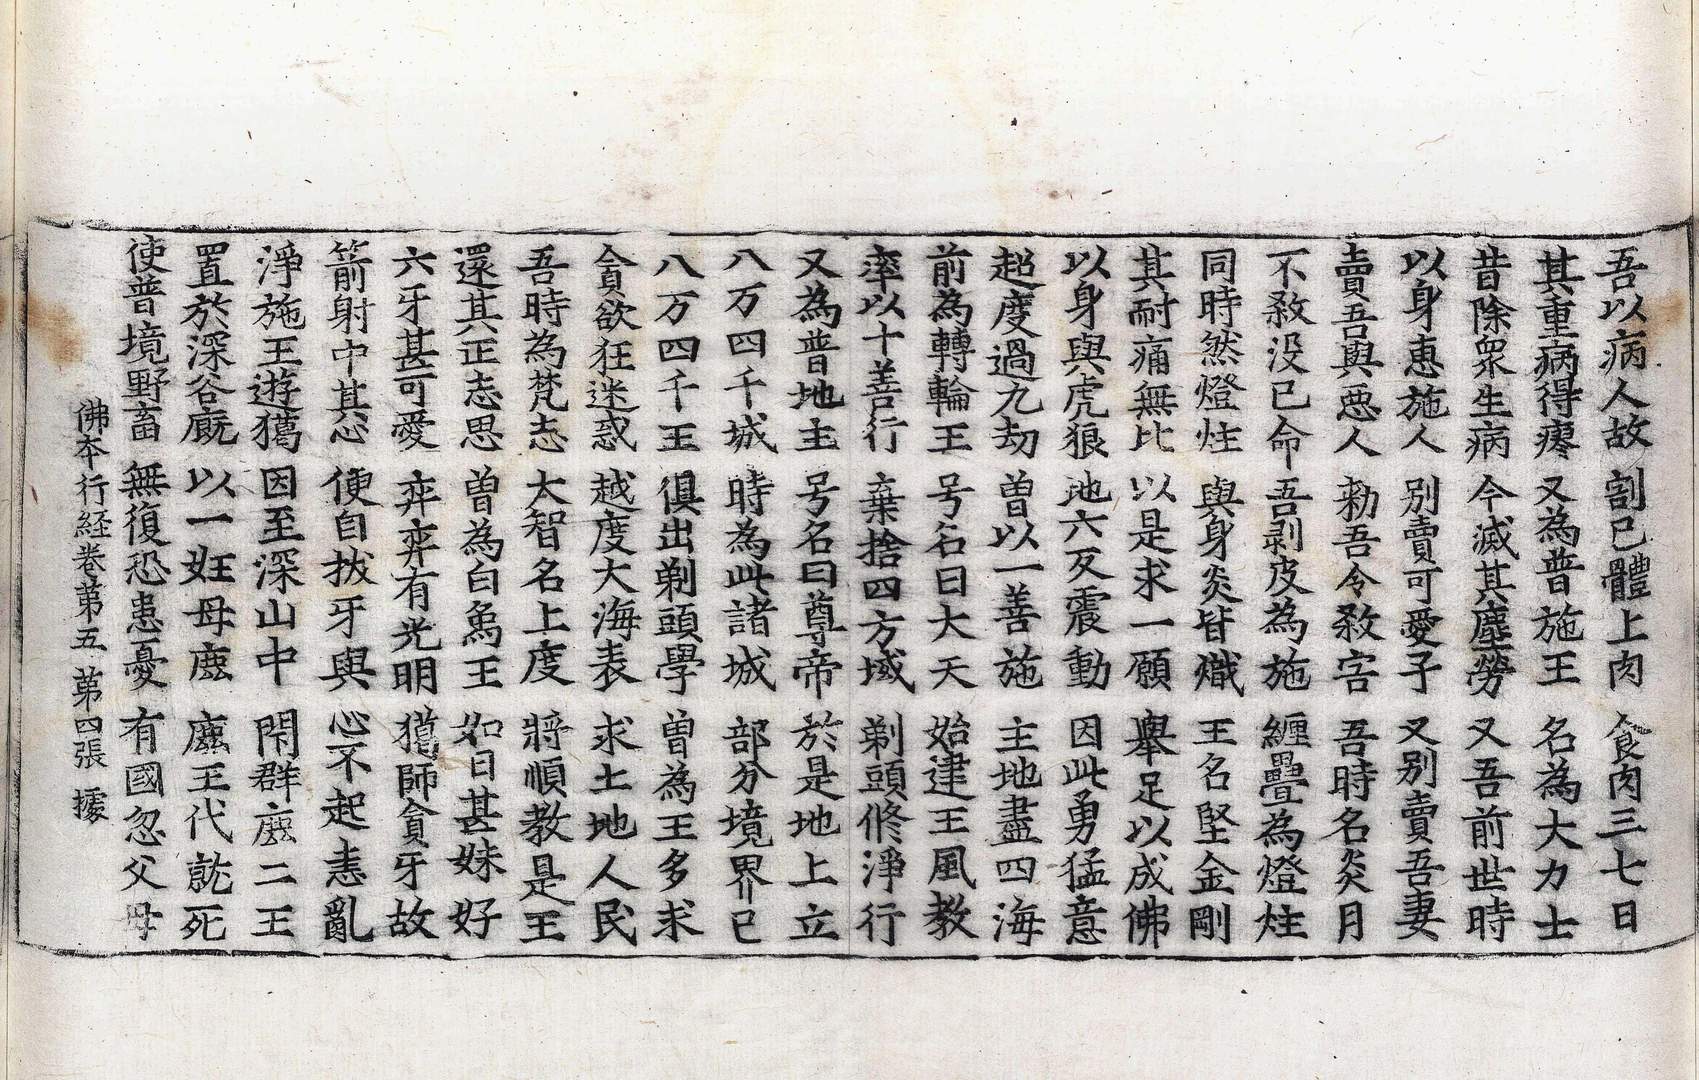 吾以病人故 割已體上肉 食肉三七日
其重病得瘳 又為普施王 名為大力士
昔除衆生病 今滅其塵勞 又吾前世時
以身恵施人 別賣可愛子 又別賣吾妻
賣吾與惡人 勑吾令敎害 吾時名炎月
不敎没已命 吾剥皮為施 纏疊為燈炷
同時然燈炷 與身炎皆熾 王名堅金剛
其耐痛無比 以是求一願 舉足以成佛
以身與虎狼 地六反震動 因此勇猛意
超度過九劫 曽以一善施 主地盡四海
前為轉輪王 号名曰大天 始建王風教
率以十善行 棄捨四方域 剃頭修淨行
又為普地主 号名曰尊帝 於是地上立
八万四千城 時為此諸城 部分境界已
八万四千王 俱出剃頭學 曽為王多求
貪欲狂迷惑 越度大海表 求土地人民
吾時為梵志 大智名上度 將順教是王
還其正志思 曽為白象王 如日甚姝好
六牙甚可愛 弈弈有光明 獦師貪牙故
箭射中其心 便自拔牙與 心不起恚亂
淨施王遊獦 因至深山中 閇群鹿二王
置於深谷廐 以一妊母鹿 鹿王代就死
使普境野畜 無復恐患憂 有國忽父母
佛本行経卷第五 第四張 據